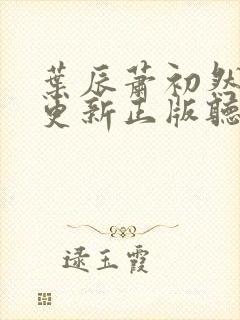 葉辰蕭初然
更新正版聽
逯玉霞